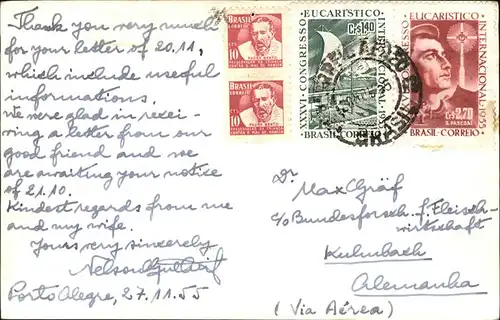 Thank you very much
for your letter of 20.11,
which include useful
informations.
We were glad in recei-
ving a letter from our
good friend and we
are awaiting your notice
of 21.10.
Kindest regards from me
and my wife.
Yours very sincerely
Nelson
Porto Alegre, 27.11.55
BRASIL
CORREIO
10
BRASIL
CORREIO
10
XXXVI-CONGRESSO
EUCARÍSTICO
INTERNACIONAL
Cr$ 1,40
BRASIL-CORREIO
CONGRESSO
EUCARISTICO
INTERNACIONAL-1955
Cr$ 2,70
S. PASCOAL
BRASIL-CORREIO
Dr
Max Gräf
c/o Bundesforsch. f. Fleisch-
wirtschaft
Kulmbach
Alemanha
(Via Aérea)